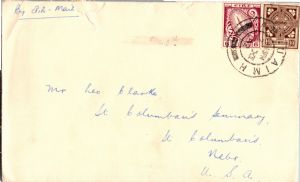 By Air-Mail.
Mr Leo Clarke
St Columban's Seminary
St Columbans
Nebr.
U. S. A